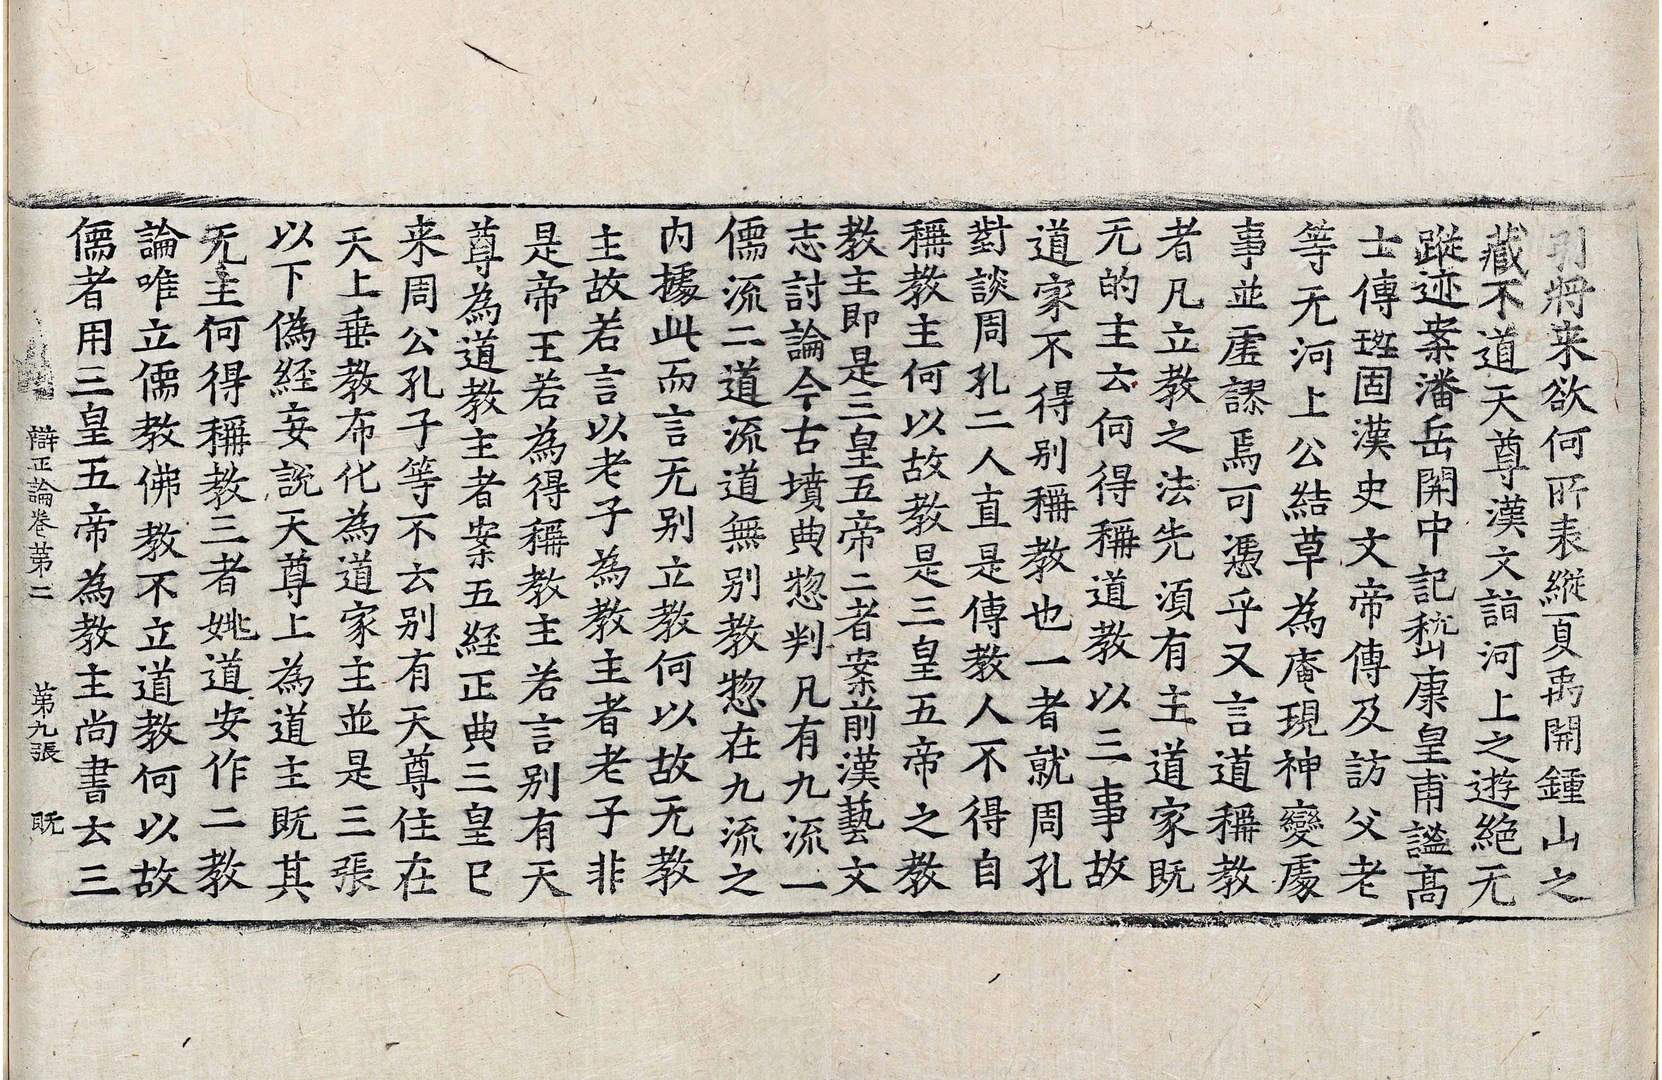 明將来欲何所表縱夏禹開鍾山之
藏不道天尊漢文詣河上之遊絶无
蹤迹案潘岳開中記嵇康皇甫謐高
士傳班固漢史文帝傳及訪父老
等无河上公結草為庵現神變處
事並虗謬焉可憑乎又言道稱教
者凡立教之法先湏有主道家旣
无的主云何得稱道教以三事故
道家不得别稱教也一者就周孔
對談周孔二人直是傳教人不得自
稱教主何以故教是三皇五帝之教
教主即是三皇五帝二者案前漢藝文
志討論今古墳典惣判凡有九流一
儒流二道流道無别教惣在九流之
内據此而言无别立教何以故无教
主故若言以老子為教主者老子非
是帝王若為得稱教主若言别有天
尊為道教主者案五經正典三皇已
来周公孔子等不云别有天尊住在
天上垂教布化為道家主並是三張
以下偽經妄說天尊上為道主旣其
无主何得稱教三者姚道安作二教
論唯立儒教佛教不立道教何以故
儒者用三皇五帝為教主尚書云三
辯正論卷第二 第九張 旣